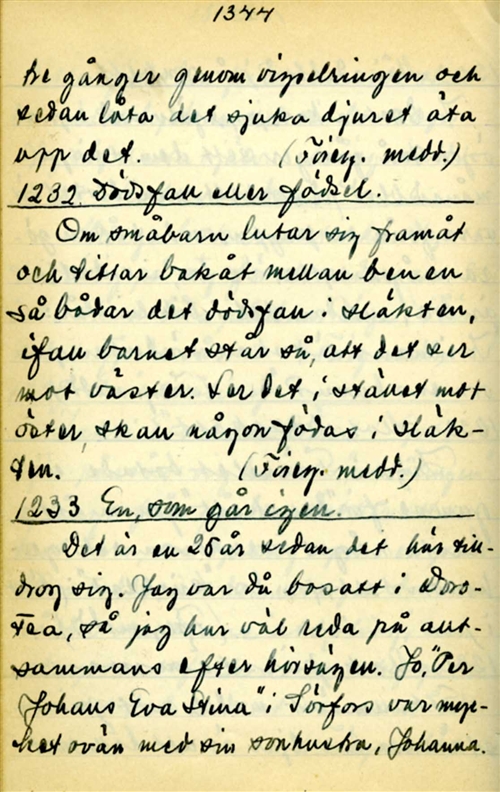 1344
tre gånger genom vigselringen och
sedan låta det sjuka djuret äta
upp det. (Föreg. medd.)
1232. Dödsfall eller födsel.
Om småbarn lutar sig framåt
och tittar bakåt mellan benen
så bådar det dödsfall i släkten,
ifall barnet står så, att det ser
mot väster. Ser det i stället mot
öster, skall någon födas i släk-
ten. (Föreg. medd.)
1233 En, som går igen.
Det är en 25 år sedan det här till-
drog sig. Jag var då bosatt i Doro-
tea, så jag har väl reda på allt-
sammans efter hörsägen. Jo, "Per
Johans Eva Stina" i Sörfors var myc-
ket ovän med sin sonhustru, Johanna.